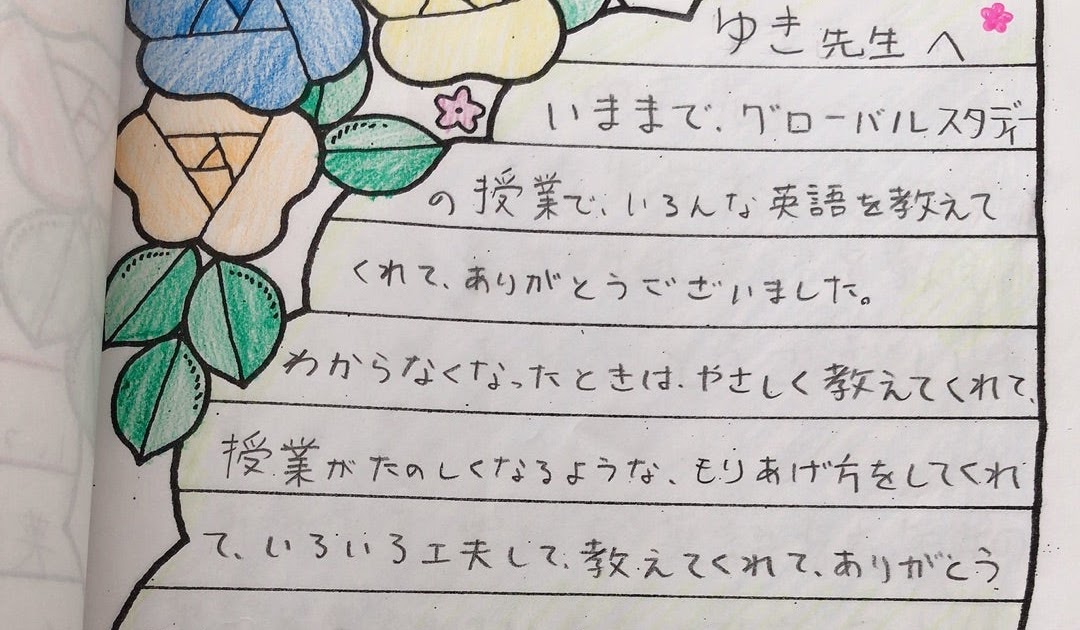 ゆき先生へ
いままで、グローバルスタディー
の授業で、いろんな英語を教えて
くれて、ありがとうございました。
わからなくなったときは、やさしく教えてくれて、
授業がたのしくなるような、もりあげ方をしてくれ
て、いろいろ工夫して、教えてくれて、ありがとう